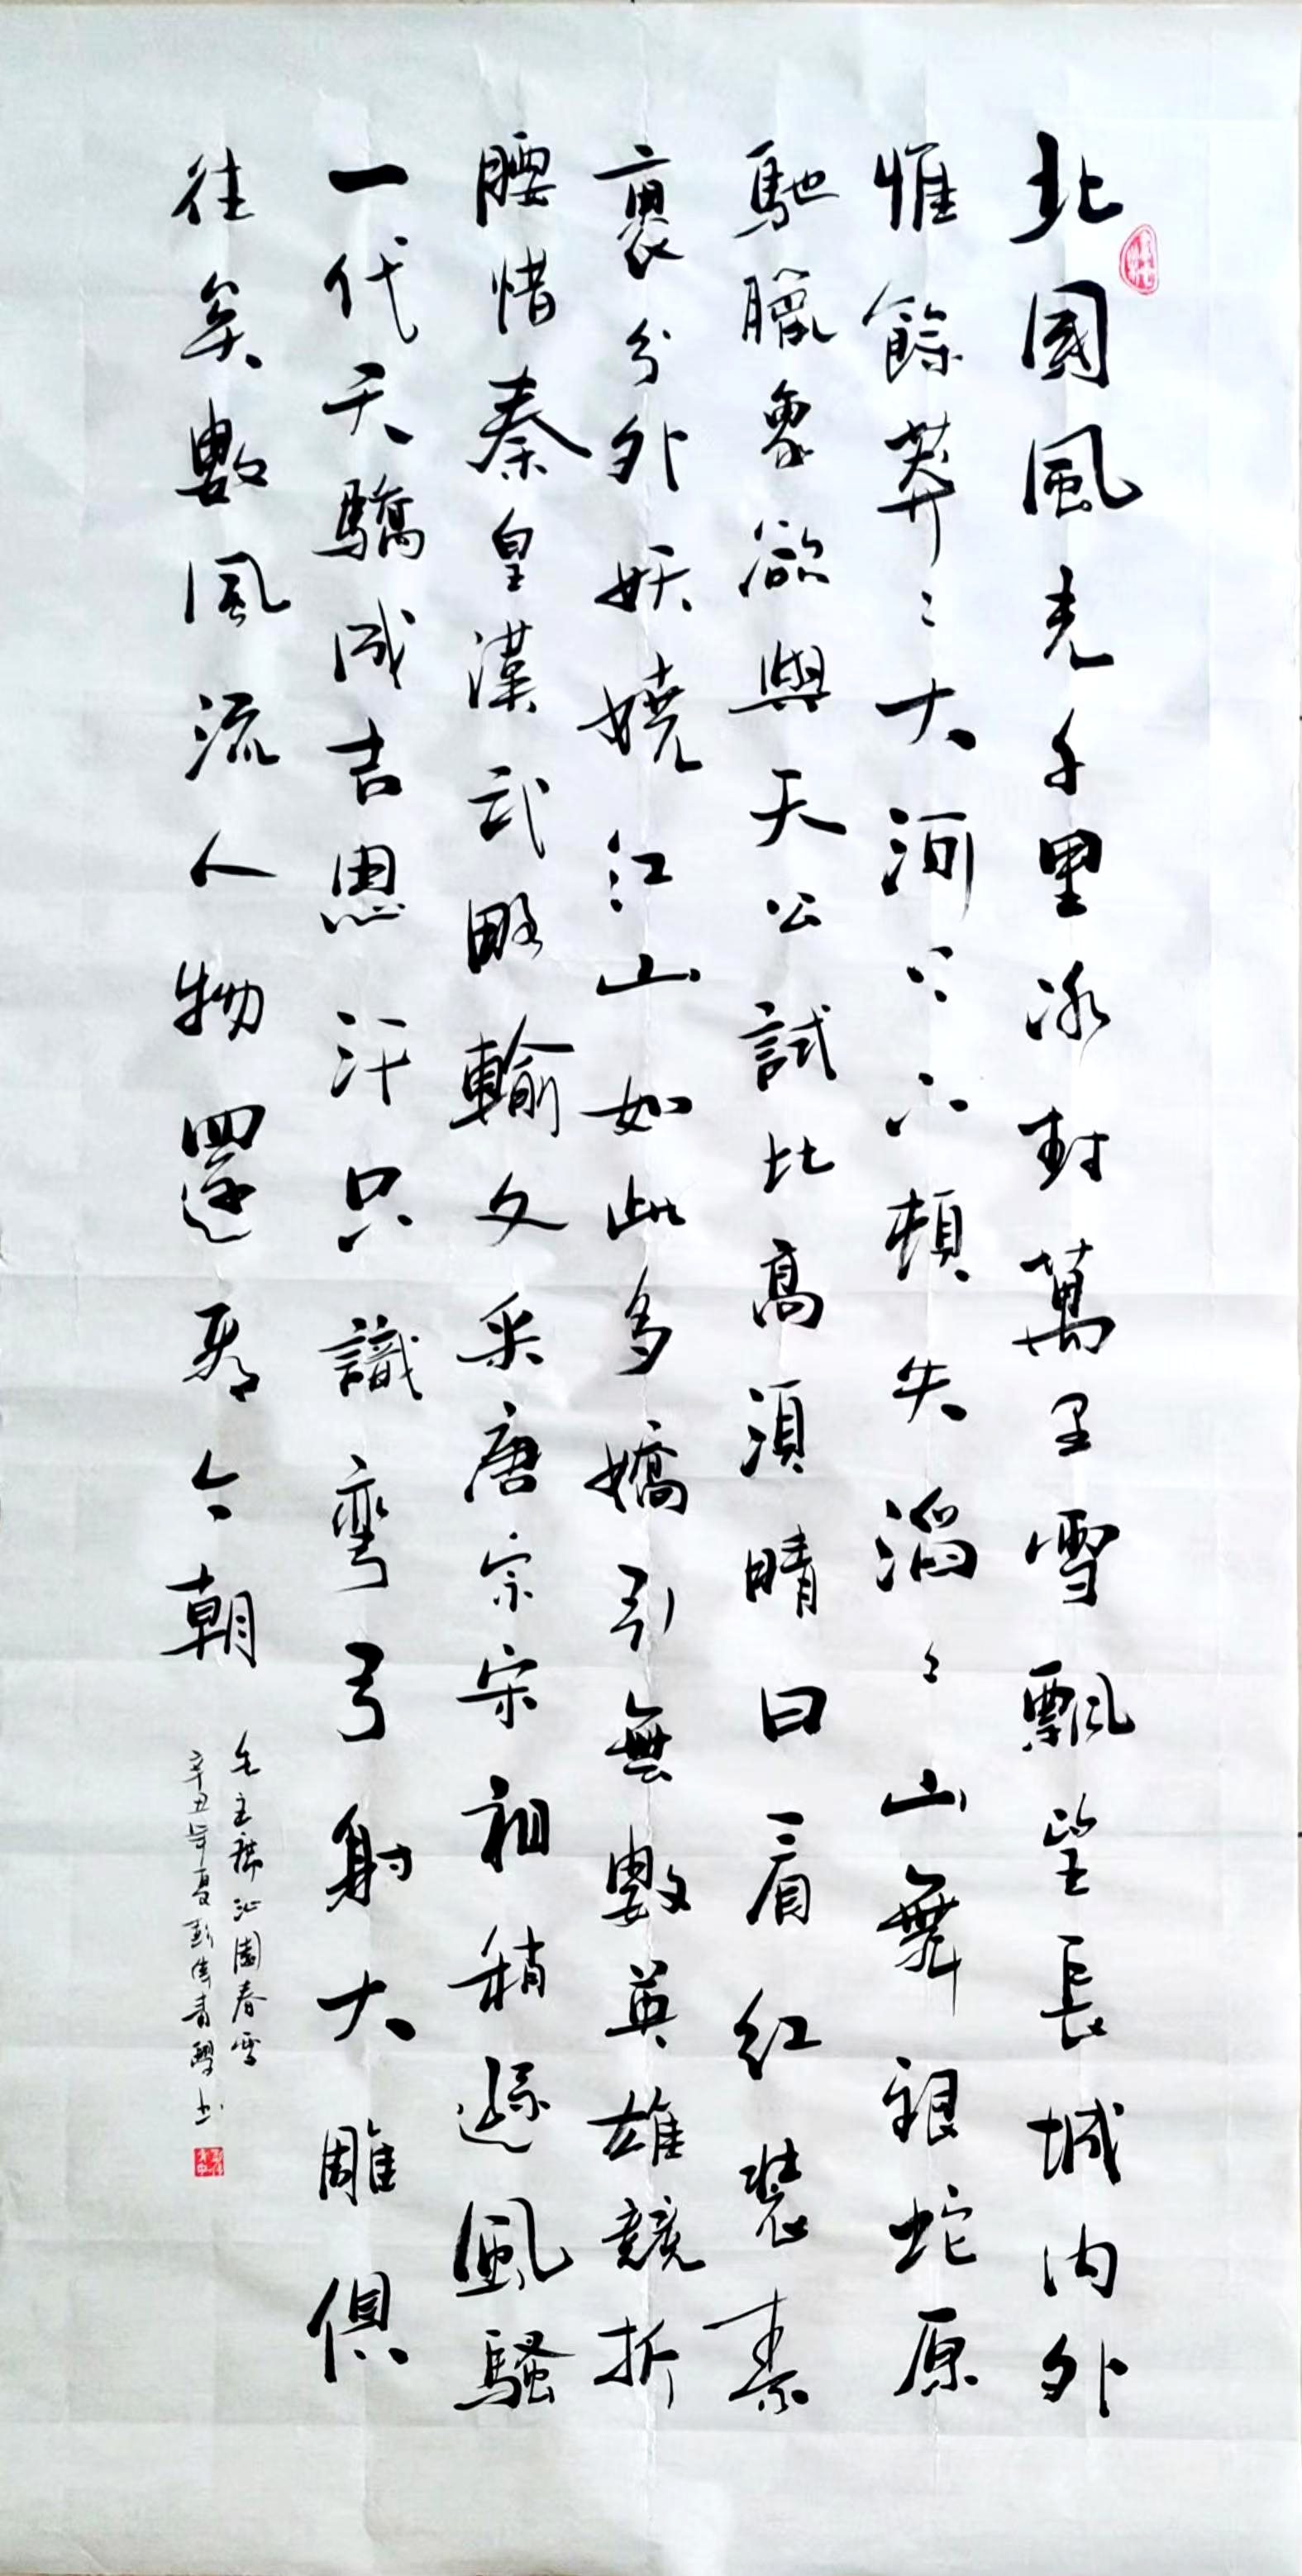 北國風光千里冰封萬里雪飄望長城內外
惟餘莽〻大河上下頓失滔〻山舞銀蛇原
馳臘象欲與天公試比高須晴日看紅裝素
裹分外妖嬈江山如此多嬌引無數英雄競折
腰惜秦皇漢武略輸文采唐宗宋祖稍遜風騷
一代天驕成吉思汗只識彎弓射大雕俱
往矣數風流人物還看今朝
毛主席沁園春雪
辛丑年夏彭偉青學書